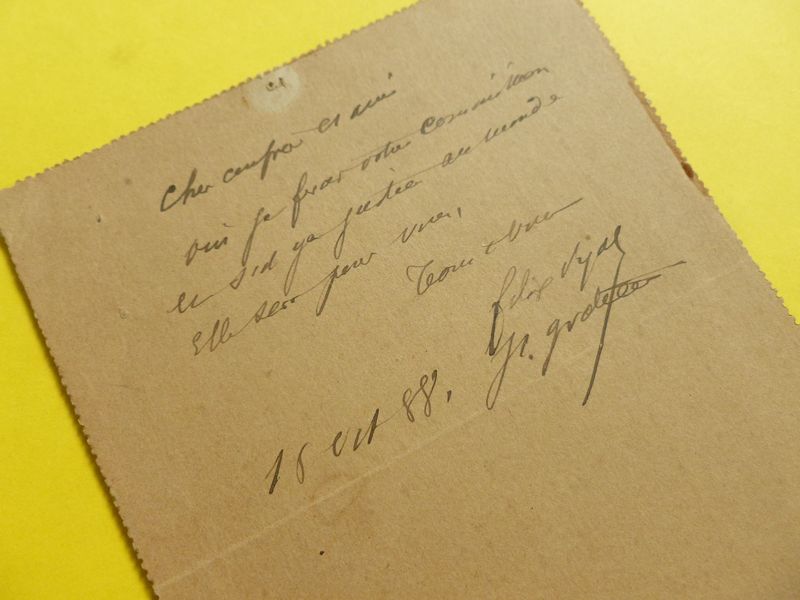 Cher confrère et ami
oui je ferai votre commission
et s'il y a justice au monde
Elle sera pour vous,
Tout à vous
Felix
15 Oct 88,